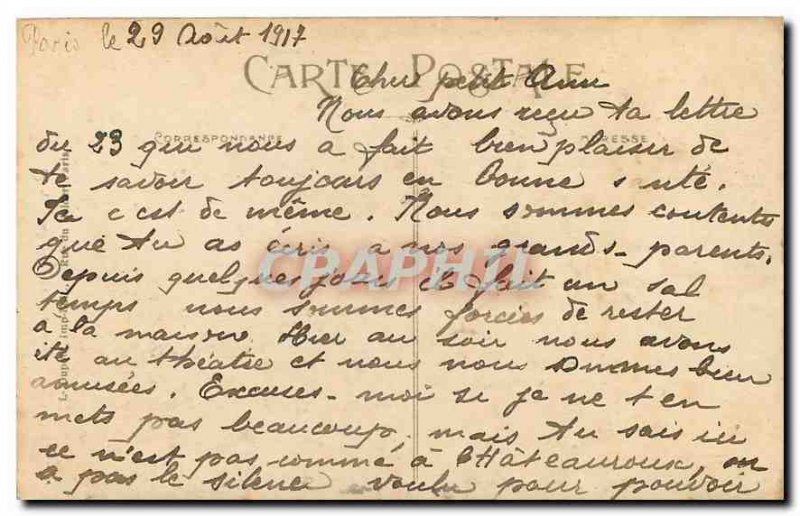 Paris le 29 Août 1917
CARTE POSTALE
Cher petit Ami
Nous avons reçu ta lettre
CORRESPONDANCE ADRESSE
du 23 qui nous a fait bien plaisir de
te savoir toujours en bonne santé.
Ici c'est de même. Nous sommes contentes
que tu as écris a nos grands-parents.
CPAPHIL
Depuis quelques jours il fait un sal
temps nous sommes forcées de rester
a la maison. Hier au soir nous avons
été au théâtre et nous nous sommes bien
amusées. Excuses-moi si je ne t'en
mets pas beaucoup, mais tu sais ici
ce n'est pas comme à Châteauroux, on
a pas le silence voulu pour pouvoir